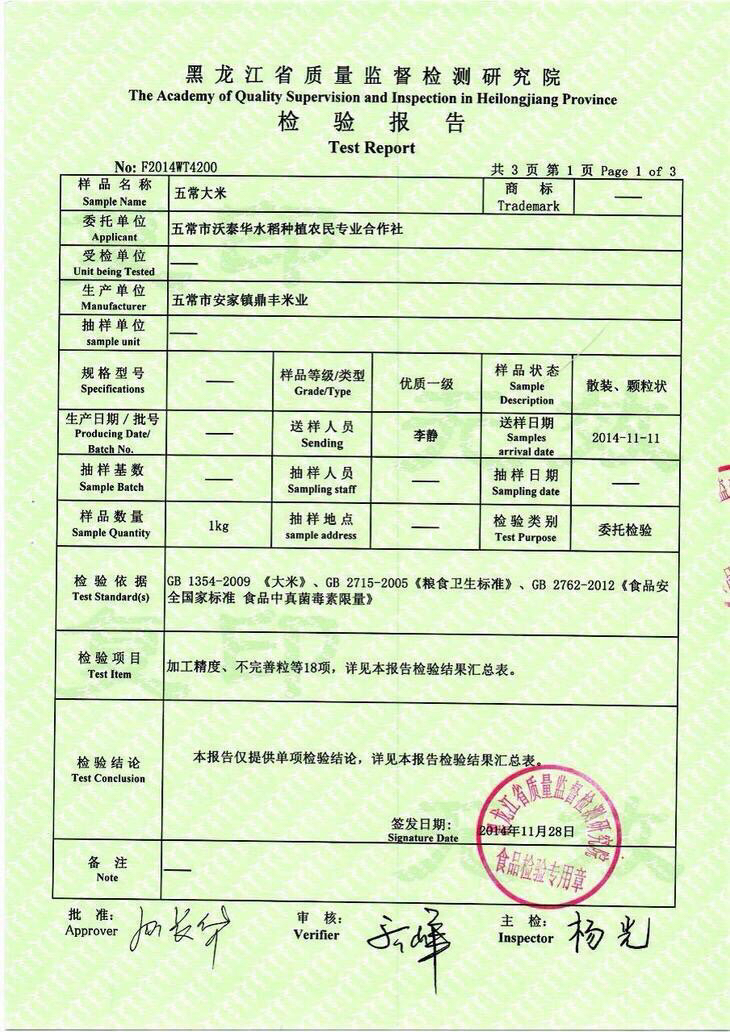 黑龙江省质量监督检测研究院
The Academy of Quality Supervision and Inspection in Heilongjiang Province
检 验 报 告
Test Report
No: F2014WT4200
共 3 页 第 1 页 Page 1 of 3
样品名称 五常大米 商 标 ——
Sample Name Trademark
委托单位 五常市沃泰华水稻种植农民专业合作社
Applicant
受检单位 ——
Unit being Tested
生产单位 五常市安家镇鼎丰米业
Manufacturer
抽样单位 ——
sample unit
规格型号 —— 样品等级/类型 优质一级 样品状态 散装、颗粒状
Specifications Grade/Type Sample
Description
生产日期/批号 —— 送样人员 李静 送样日期 2014-11-11
Producing Date/ Sending Samples
Batch No. arrival date
抽样基数 —— 抽样人员 —— 抽样日期 ——
Sample Batch Sampling staff Sampling date
样品数量 1kg 抽样地点 —— 检验类别 委托检验
Sample Quantity sample address Test Purpose
检验依据 GB 1354-2009 《大米》、GB 2715-2005《粮食卫生标准》、GB 2762-2012《食品安
Test Standard(s) 全国家标准 食品中真菌毒素限量》
检验项目 加工精度、不完善粒等18项，详见本报告检验结果汇总表。
Test Item
检验结论 本报告仅提供单项检验结论，详见本报告检验结果汇总表。
Test Conclusion
签发日期: 2014年11月28日
Signature Date
黑龙江省质量监督检测研究院
食品检验专用章
备 注 ——
Note
批 准: 审 核: 主 检: 杨光
Approver Verifier Inspector